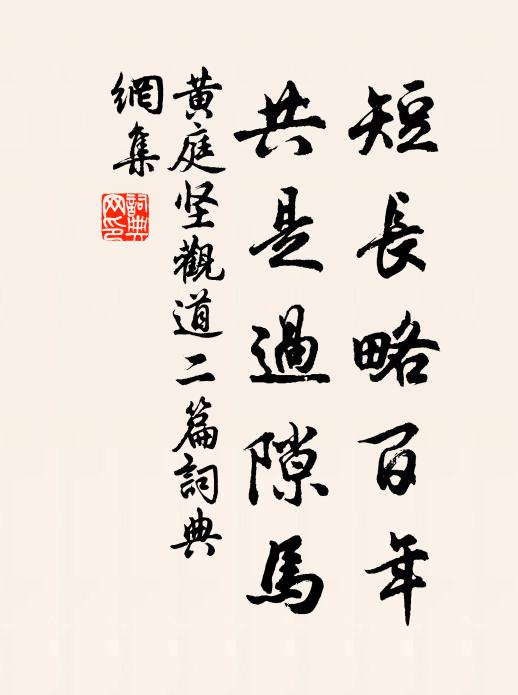 短長略百年
共是過隙馬
黄庭坚觀道二篇詞典
網集
詞典
网印